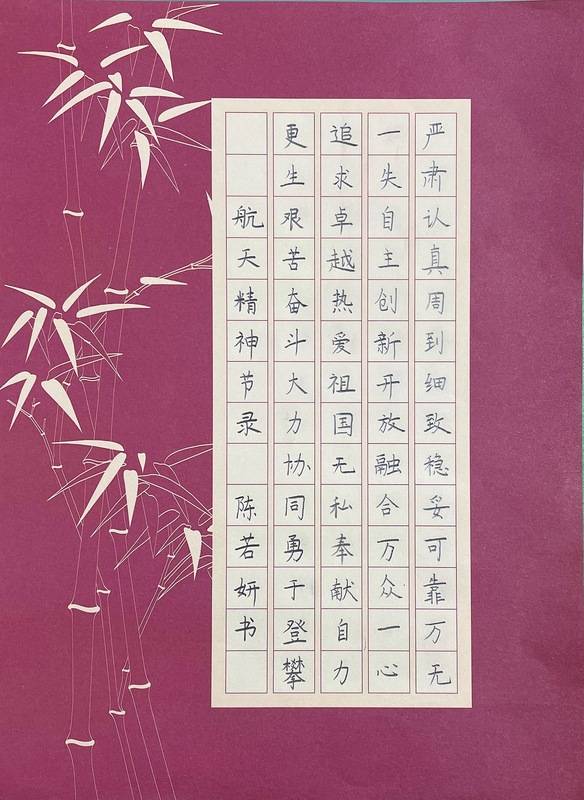 严肃认真周到细致稳妥可靠万无
一失自主创新开放融合万众一心
追求卓越热爱祖国无私奉献自力
更生艰苦奋斗大力协同勇于登攀
航天精神节录 陈若妍书